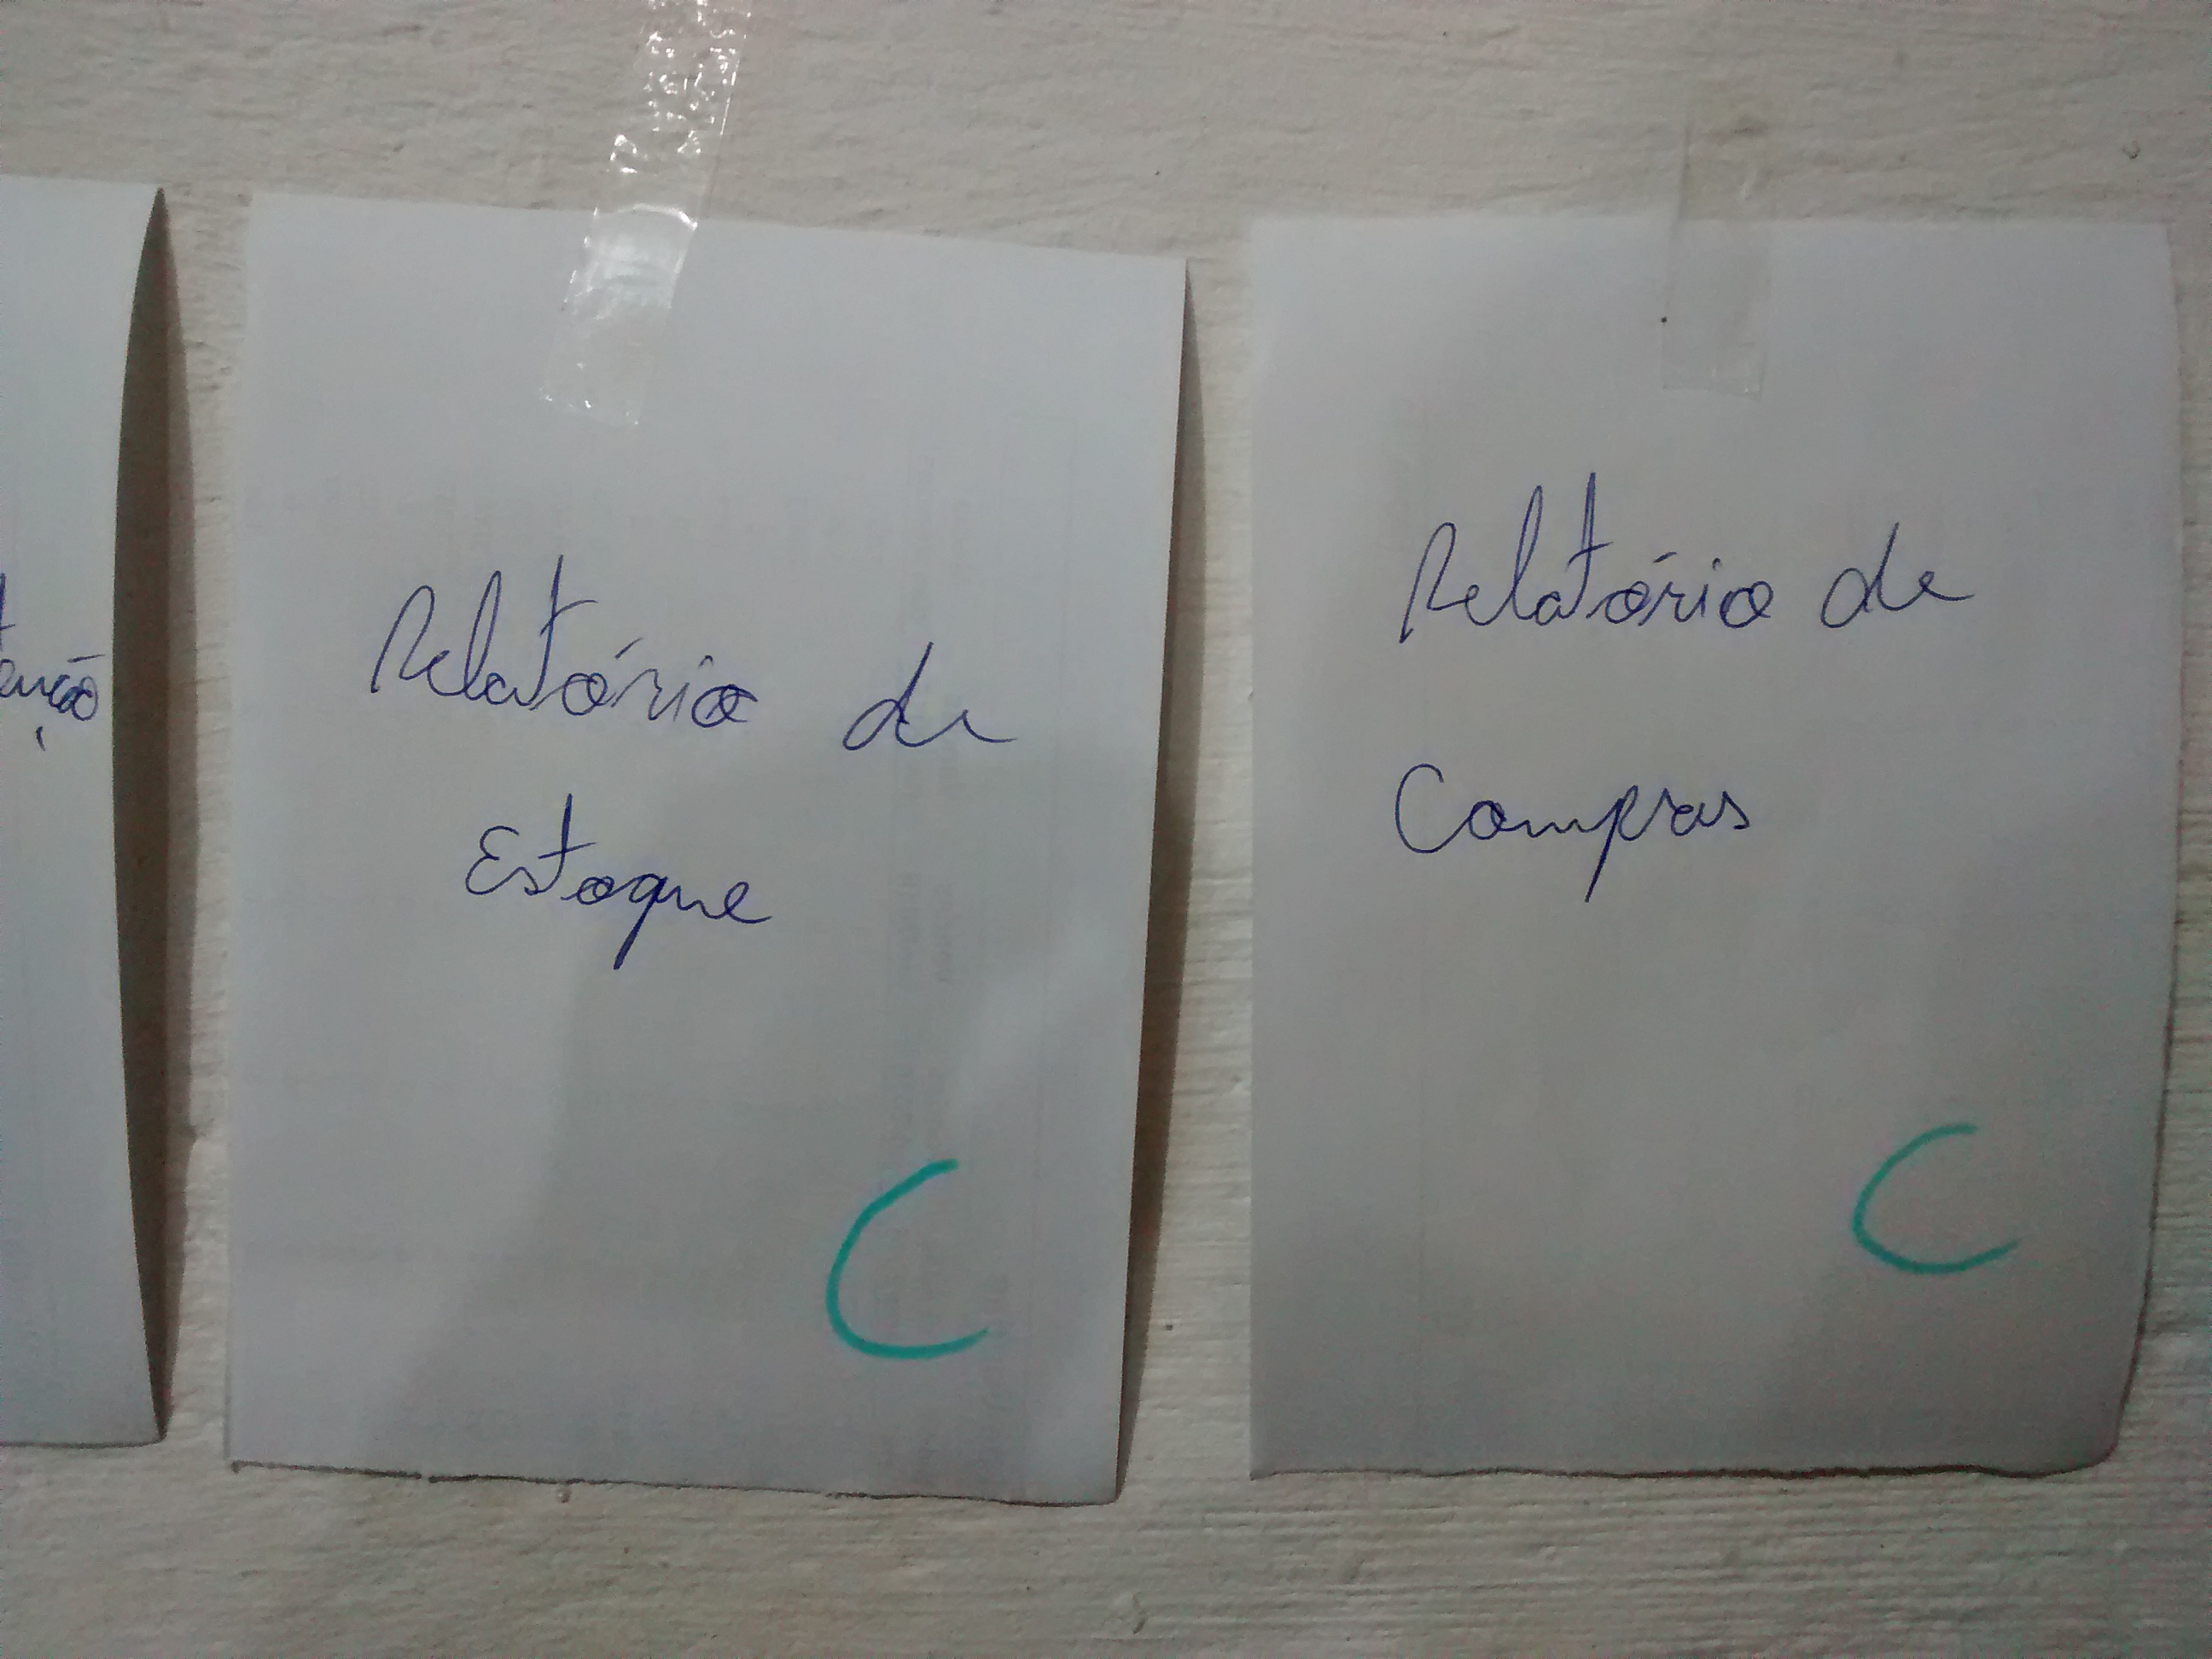 Relatório de
Estoque
C
Relatório de
Compras
C